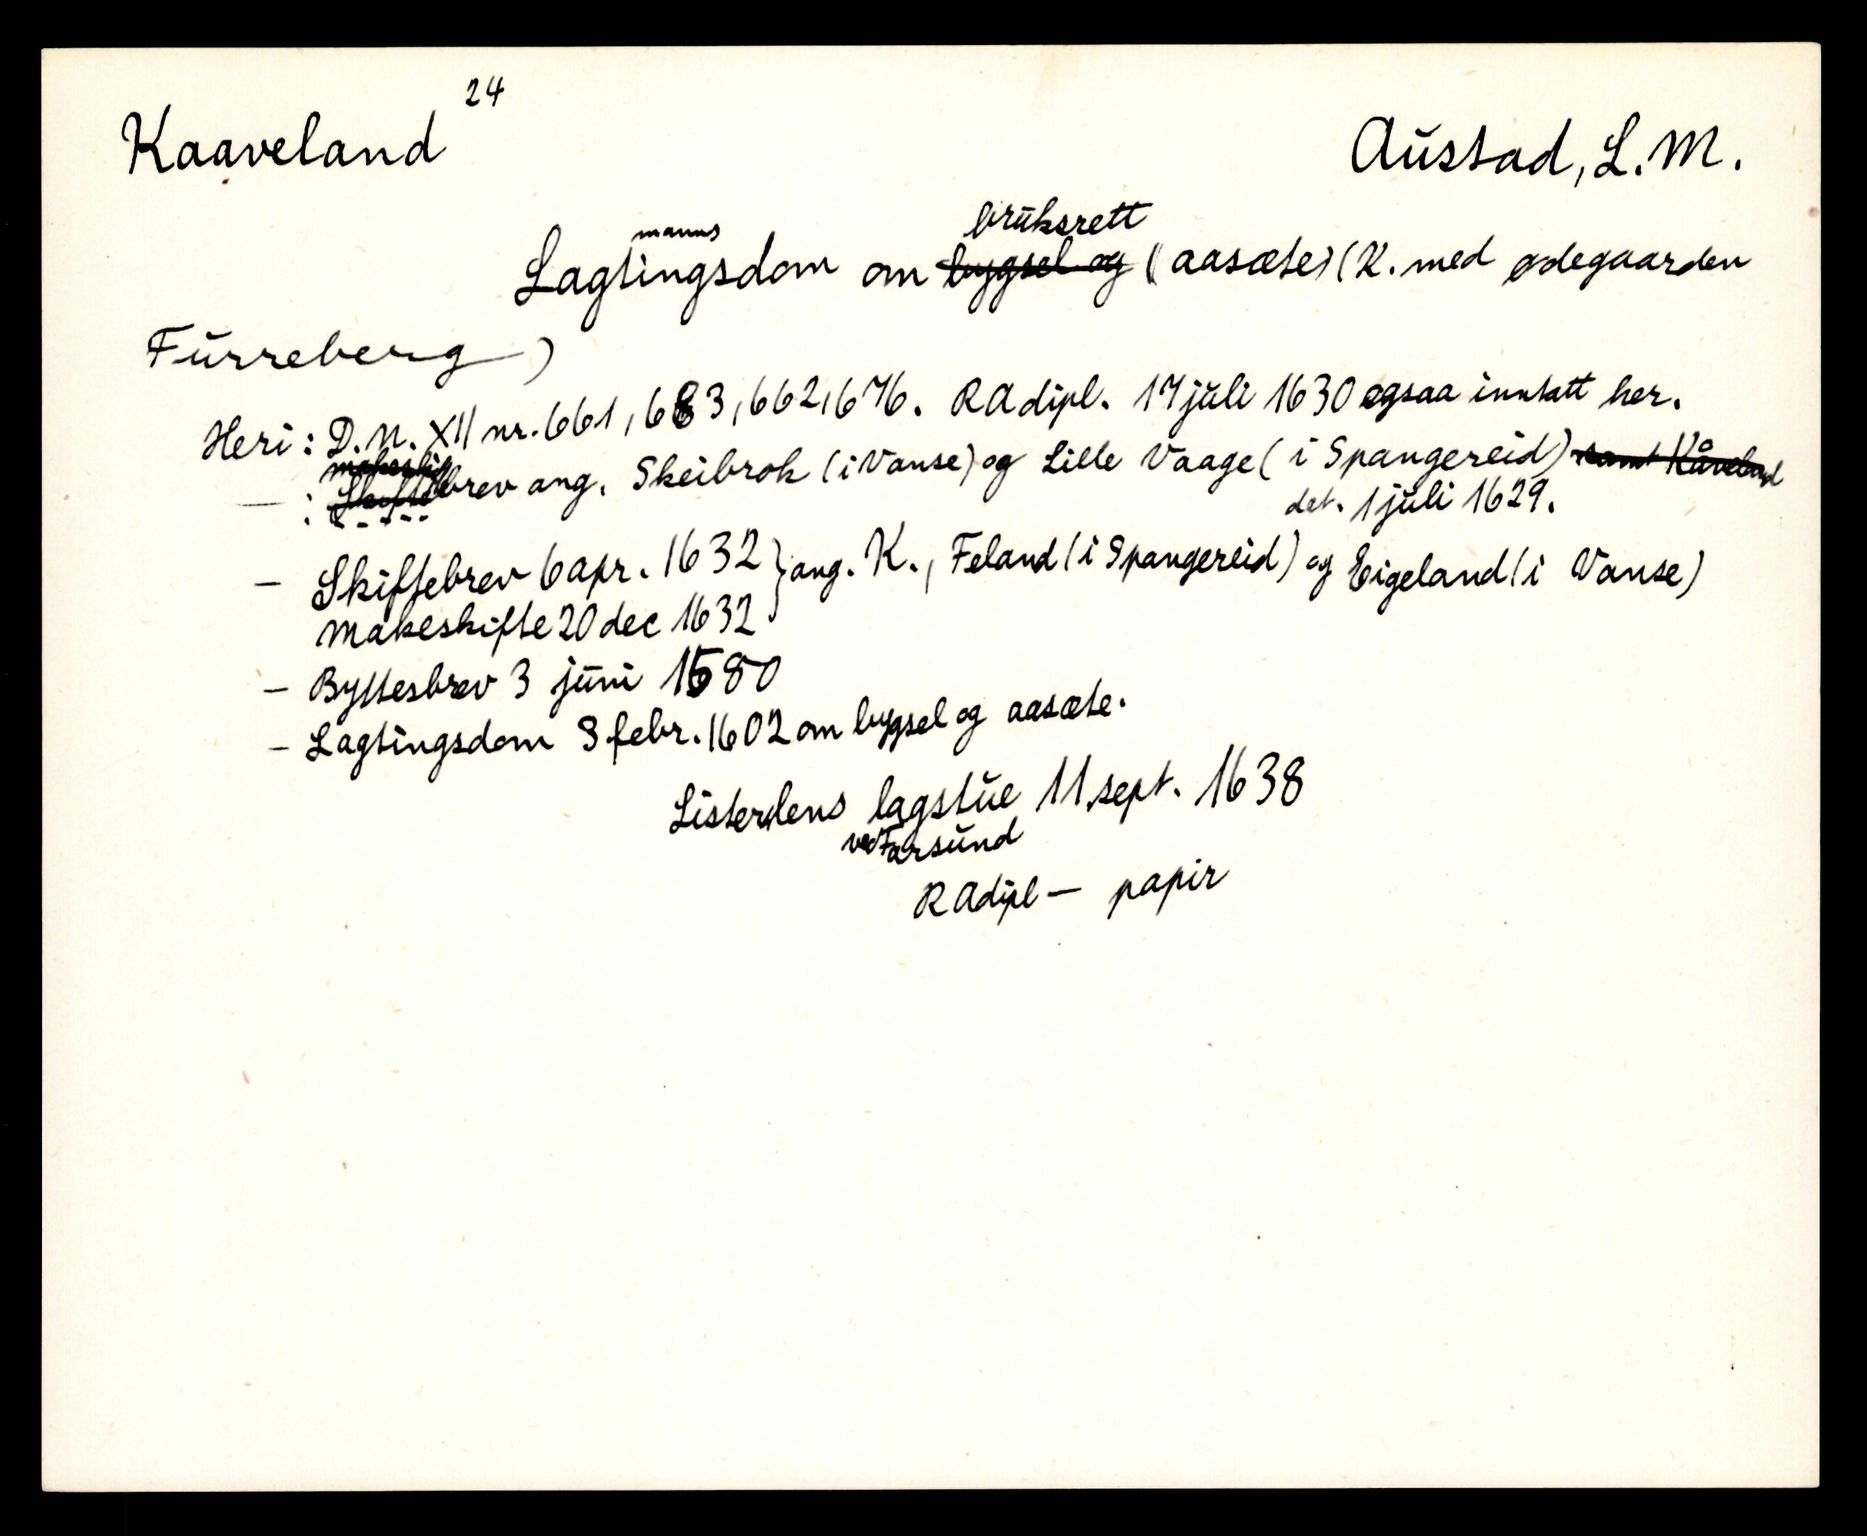 Kaaveland 24
Austad, L. M.
manns bruksrett
Lagtingsdom om bygsel og (aasæte) (K. med ødegaarden
Furreberg)
Heri: D.N. XII nr. 661, 683, 662, 676. RA dipl. 17 juli 1630 ogsaa inntatt her.
makeskifte
— : Skiftebrev ang. Skeibrok (i Vanse) og Lille Vaage (i Spangereid) samt Kåveland
dat. 1 juli 1629.
— Skiftebrev 6 apr. 1632 } ang. K., Feland (i Spangereid) og Eigeland (i Vanse)
Makeskifte 20 dec 1632
— Byttesbrev 3 juni 1580
— Lagtingsdom 3 febr. 1602 om bygsel og aasæte.
Listerlens lagstue 11. sept. 1638
ved Farsund
RA dipl — papir